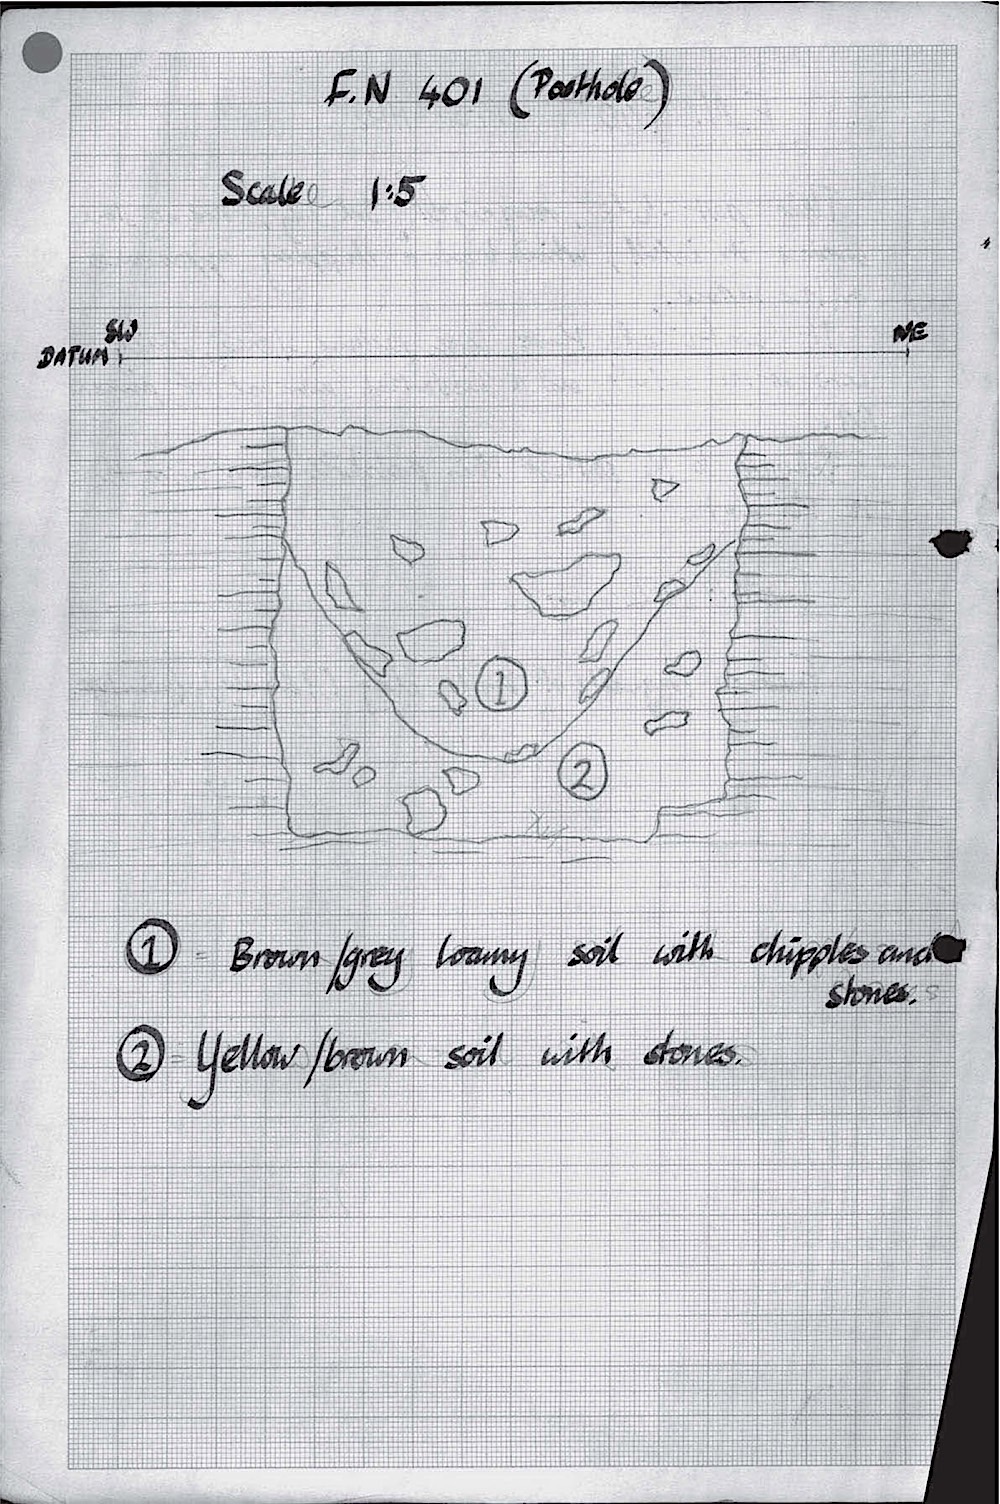 F.N 401 (Posthole)
Scale 1:5
SW
NE
DATUM
1
2
1 - Brown/grey loamy soil with chipples and
stones.
2 - Yellow/brown soil with stones.